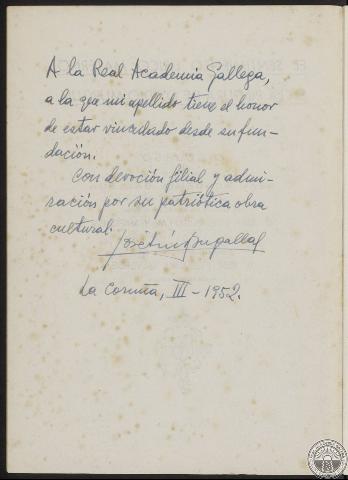 A la Real Academia Gallega,
a la que mi apellido tiene el honor
de estar vinculado desde su fun-
dación.
Con devoción filial y admi-
ración por su patriótica obra
cultural.
José Bugallal
La Coruña, III - 1952.